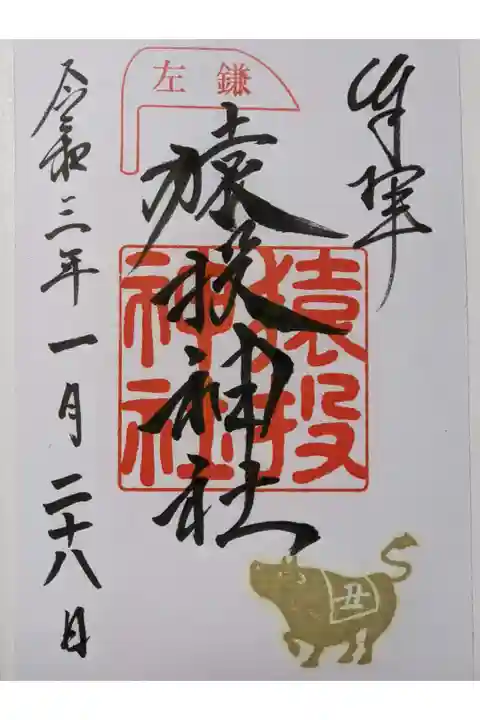 奉拝
左鎌
猿投神社
猿投神社
令和三年一月二十八日
丑